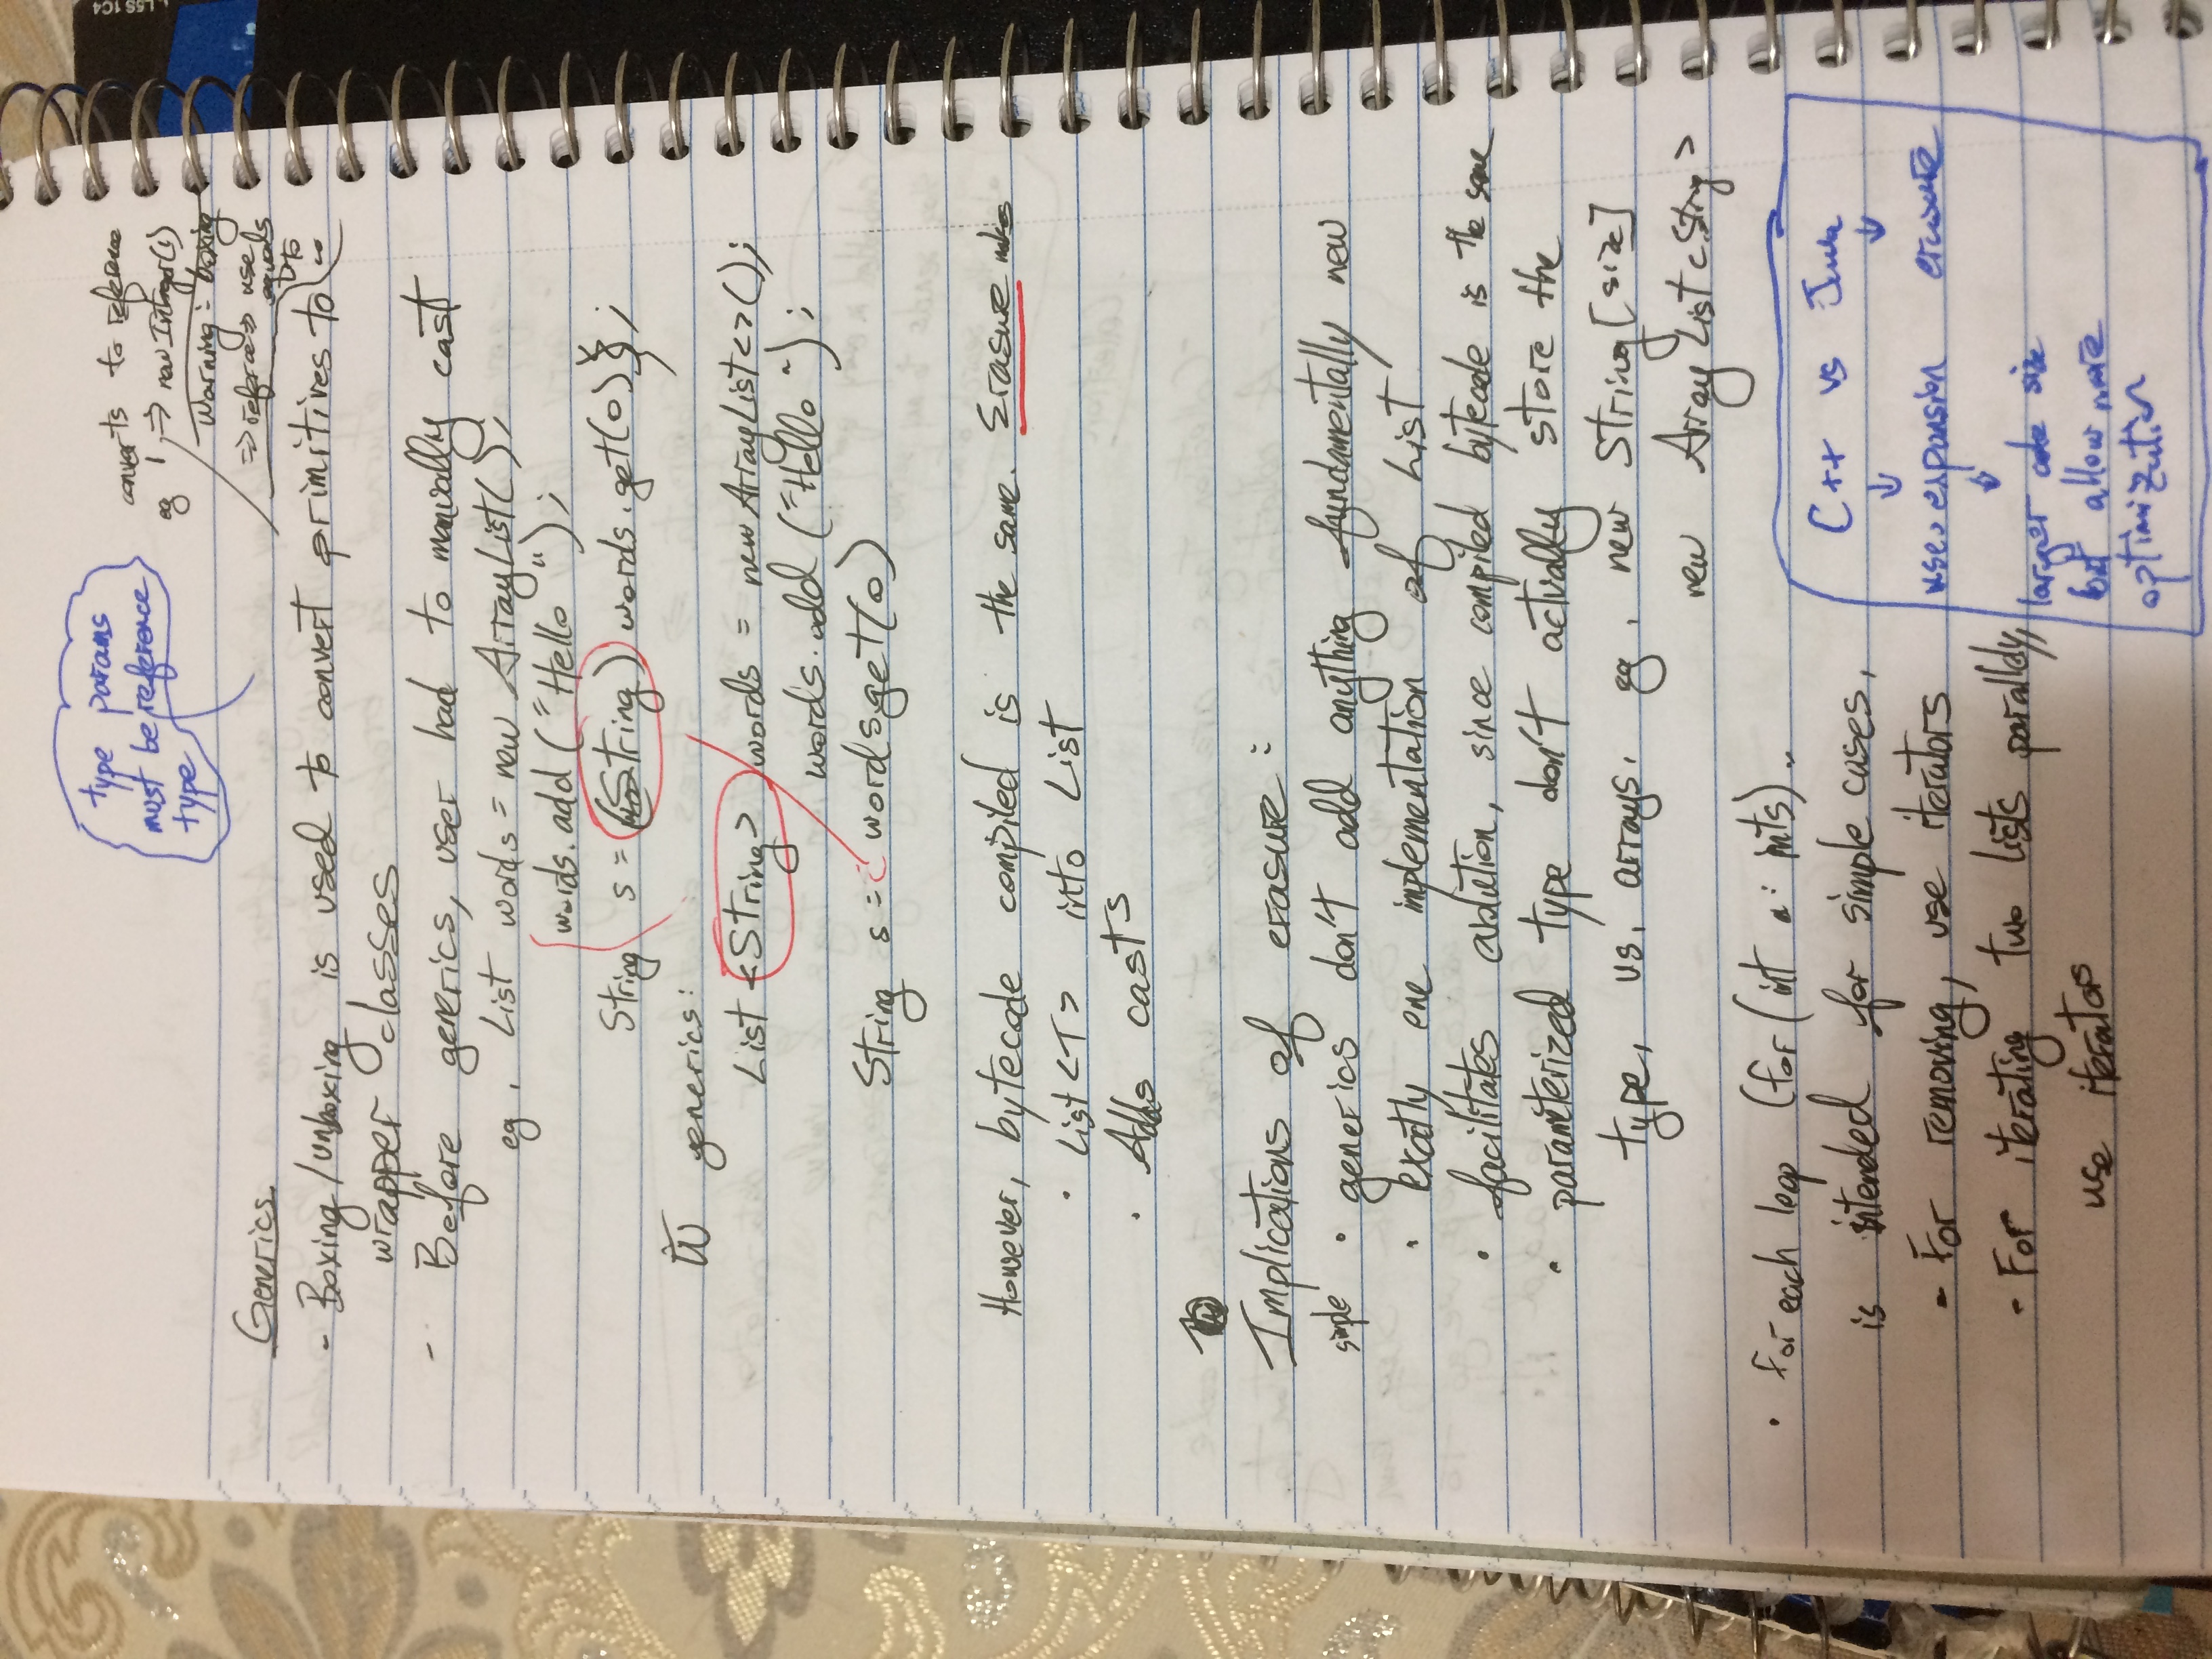 type params
must be reference
type
converts to reference
eg 1 => new Integer(1)
Warning: boxing
=> refere => use
equals
to
Generics
- Boxing/unboxing is used to convert primitives to
wrapper classes
- Before generics, user had to manually cast
eg, List words = new ArrayList();
words.add("Hello");
String s = (String) words.get(0);
W generics:
List <String> words = new ArrayList<>();
words.add("Hello");
String s = words.get(0)
However, bytecode compiled is the same. Erasure makes
· List<T> into List
· Adds casts
Implications of erasure:
simple · generics don't add anything fundamentally new
· exactly one implementation of List
· facilitates evolution, since compiled bytecode is the same
· parameterized type don't actually store the
type, vs, arrays. eg, new String[size]
new ArrayList<String>
· For each loop (for(int a: ints)..
is intended for simple cases,
- For removing, use iterators
- For iterating two lists parallely,
use iterators
C++ vs Java
↓ ↓
use expansion erasure
↓
larger code size
but allow more
optimization
L5S 1C4